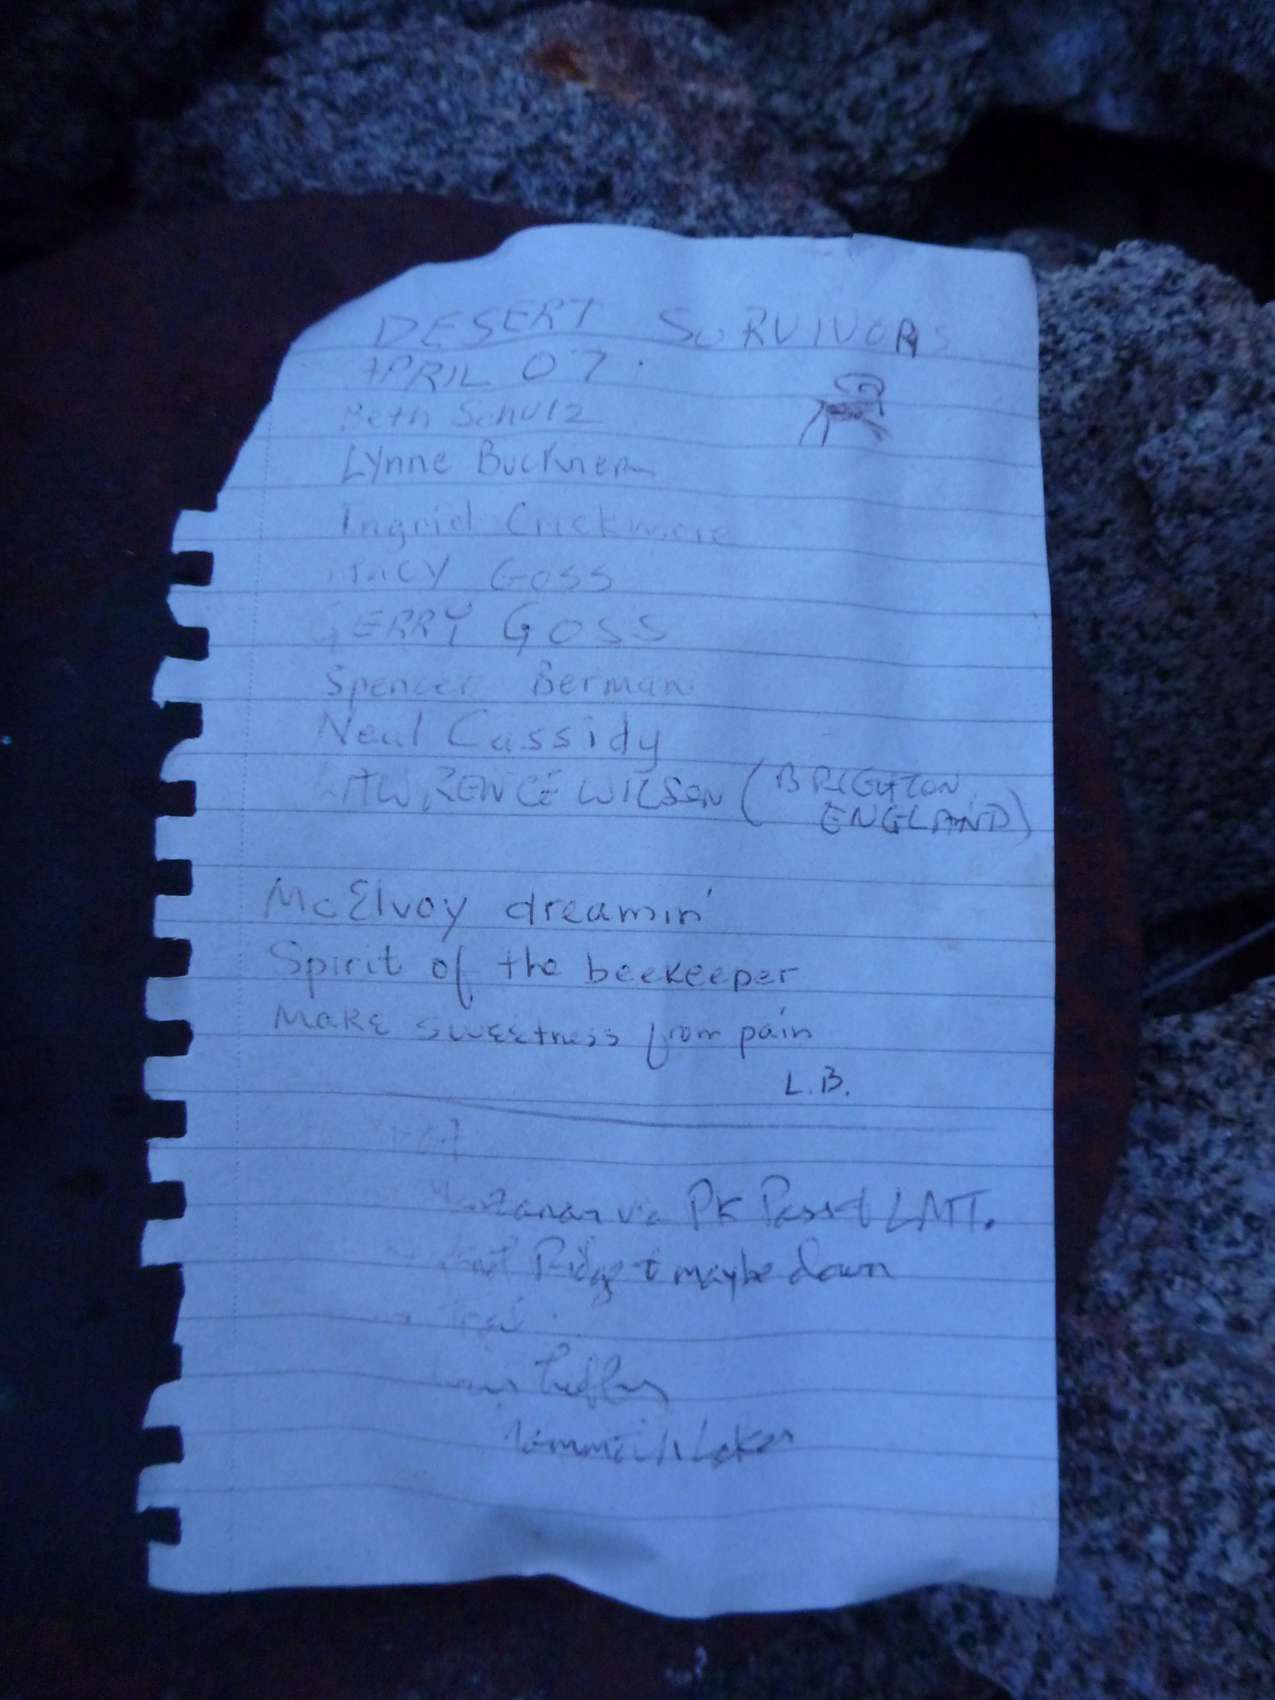 DESERT SURVIVORS
APRIL 07.
Beth Schulz
Lynne Buckner
Ingrid Crickmore
GOSS
GERRY GOSS
Spencer Berman
Neal Cassidy
LAWRENCE WILSON (BRIGHTON,
ENGLAND)
McElvoy dreamin'
Spirit of the beekeeper
Make sweetness from pain
L.B.
Manzanar via PK Pass & LMT.
Ridge & maybe down
Trail
Mammoth Lakes